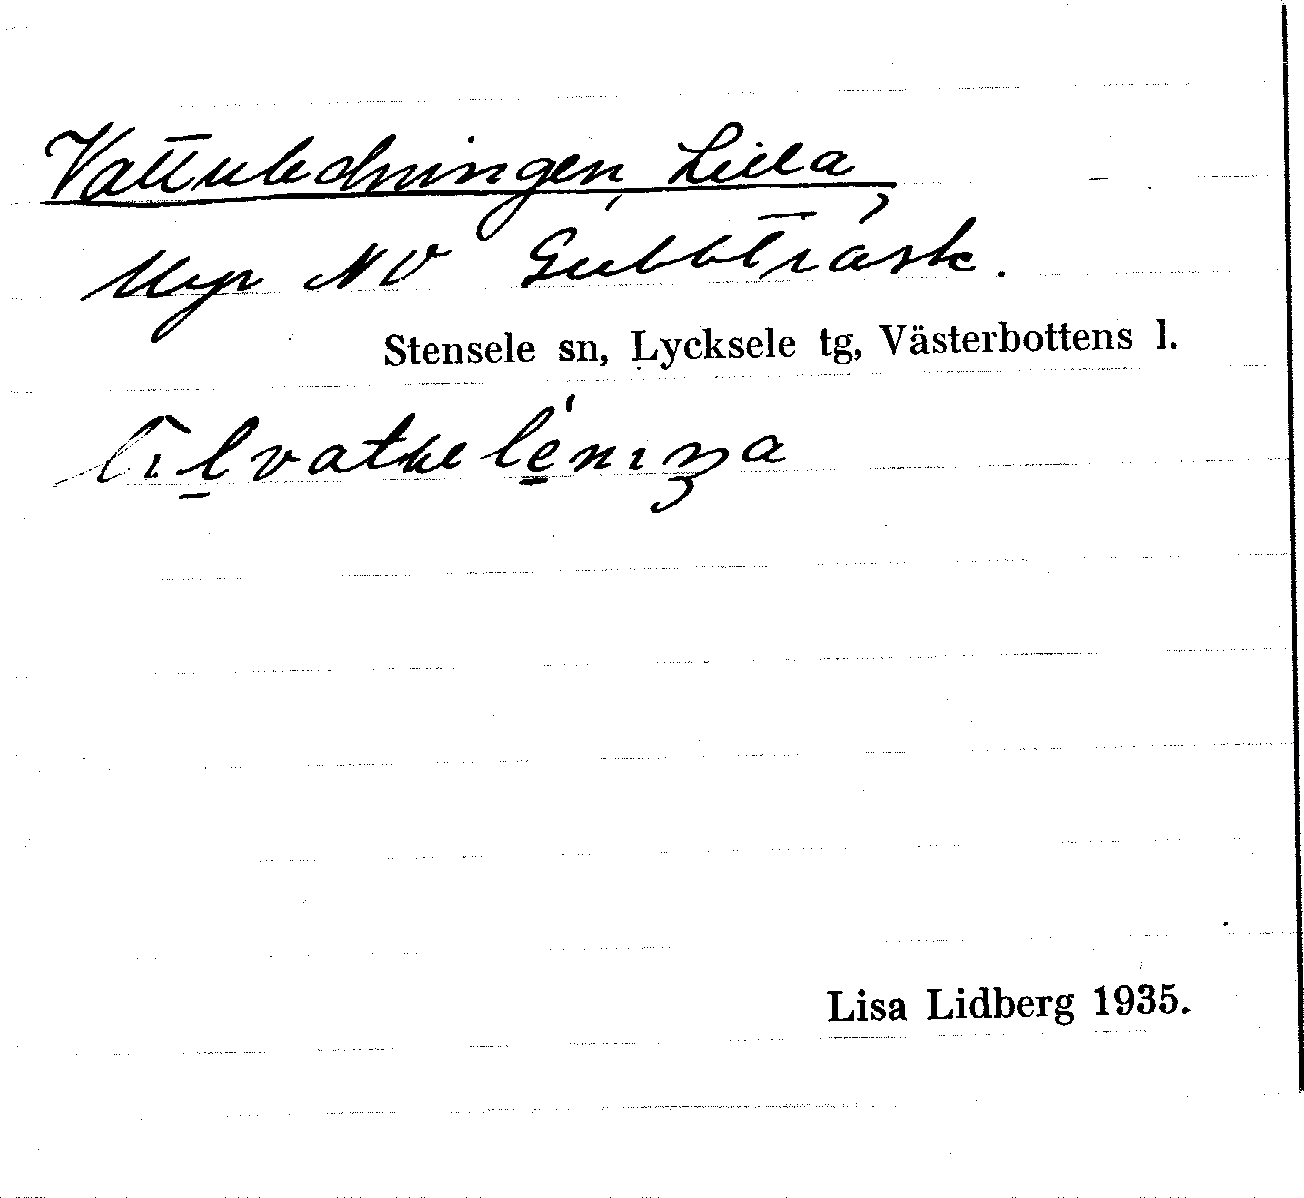 Vattuledningen, Lilla,
Myr NV Gubbträsk.
Stensele sn, Lycksele tg, Västerbottens l.
Lisa Lidberg 1935.